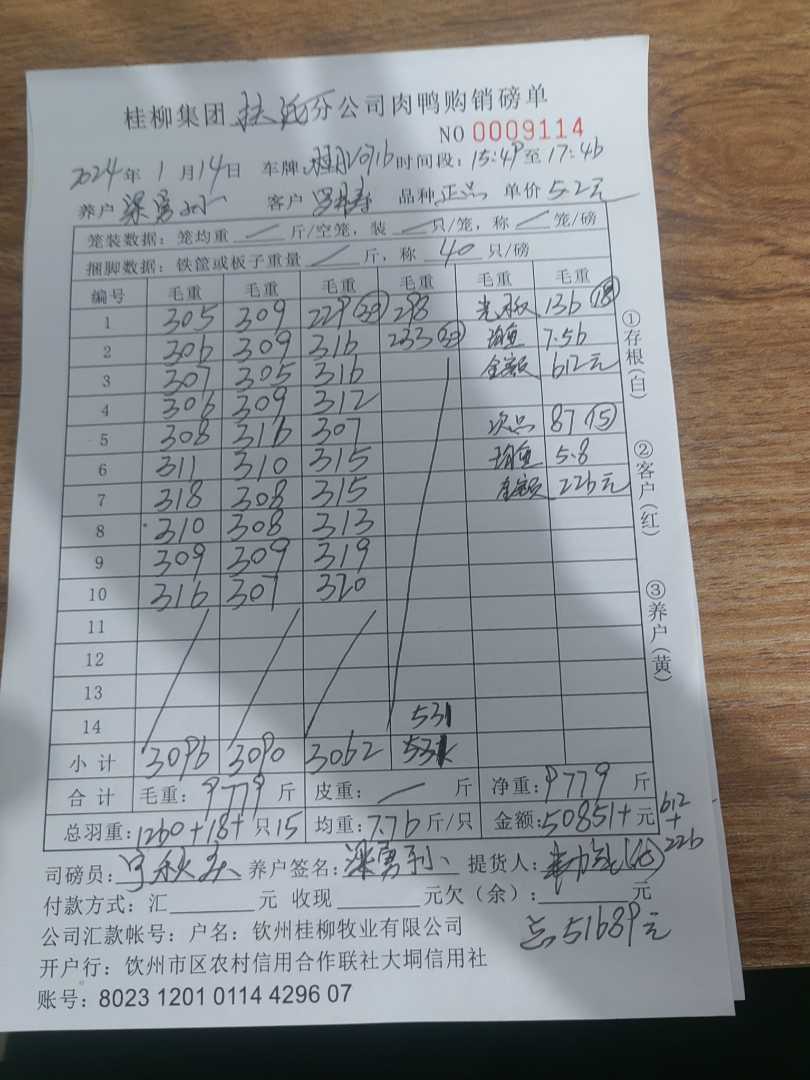 桂柳集团 扶沅分公司肉鸭购销磅单
NO 0009114
2024年 1 月 14日 车牌: 时间段: 15:49至 17:46
养户 梁勇 客户 品种 正品 单价 5.2元
笼装数据: 笼均重 / 斤/空笼, 装 / 只/笼, 称 / 笼/磅
捆脚数据: 铁筐或板子重量 / 斤, 称 40 只/磅
编号 毛重 毛重 毛重 毛重 毛重 毛重
1 305 309 229 298 光板 136 (18)
2 306 309 316 233 均重 7.56
3 307 305 316 金额 612元
4 306 309 312
5 308 316 307 次品 87 (15)
6 311 310 315 均重 5.8
7 318 308 315 金额 226元
8 310 308 313
9 309 309 319
10 316 307 320
11
12
13
14 531
小计 3096 3090 3062 531
合计 毛重: 9779 斤 皮重: / 斤 净重: 9779 斤
总羽重: 1260+18+ 只 15 均重: 7.76 斤/只 金额: 50851+ 元 612
+
226
司磅员: 养户签名: 梁勇 提货人:
付款方式: 汇 元 收现 元欠(余): 元
总51689元
公司汇款帐号: 户名: 钦州桂柳牧业有限公司
开户行: 钦州市区农村信用合作联社大垌信用社
账号: 8023 1201 0114 4296 07
①存根(白)
②客户(红)
③养户(黄)